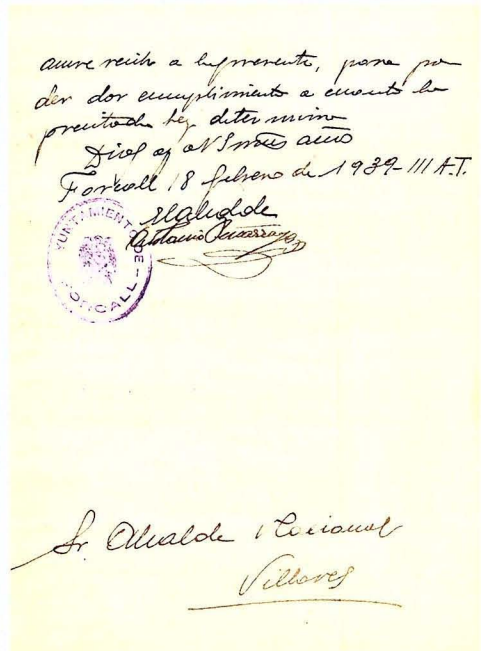 acuse recibo a la presente, para po
der dar cumplimiento a cuanto la
precitada Ley determina
Dios
Forcall 18 febrero de 1939-III A.T.
El alcalde
Antonio
AYUNTAMIENTO DE
FORCALL
Sr Alcalde Nacional
Villores